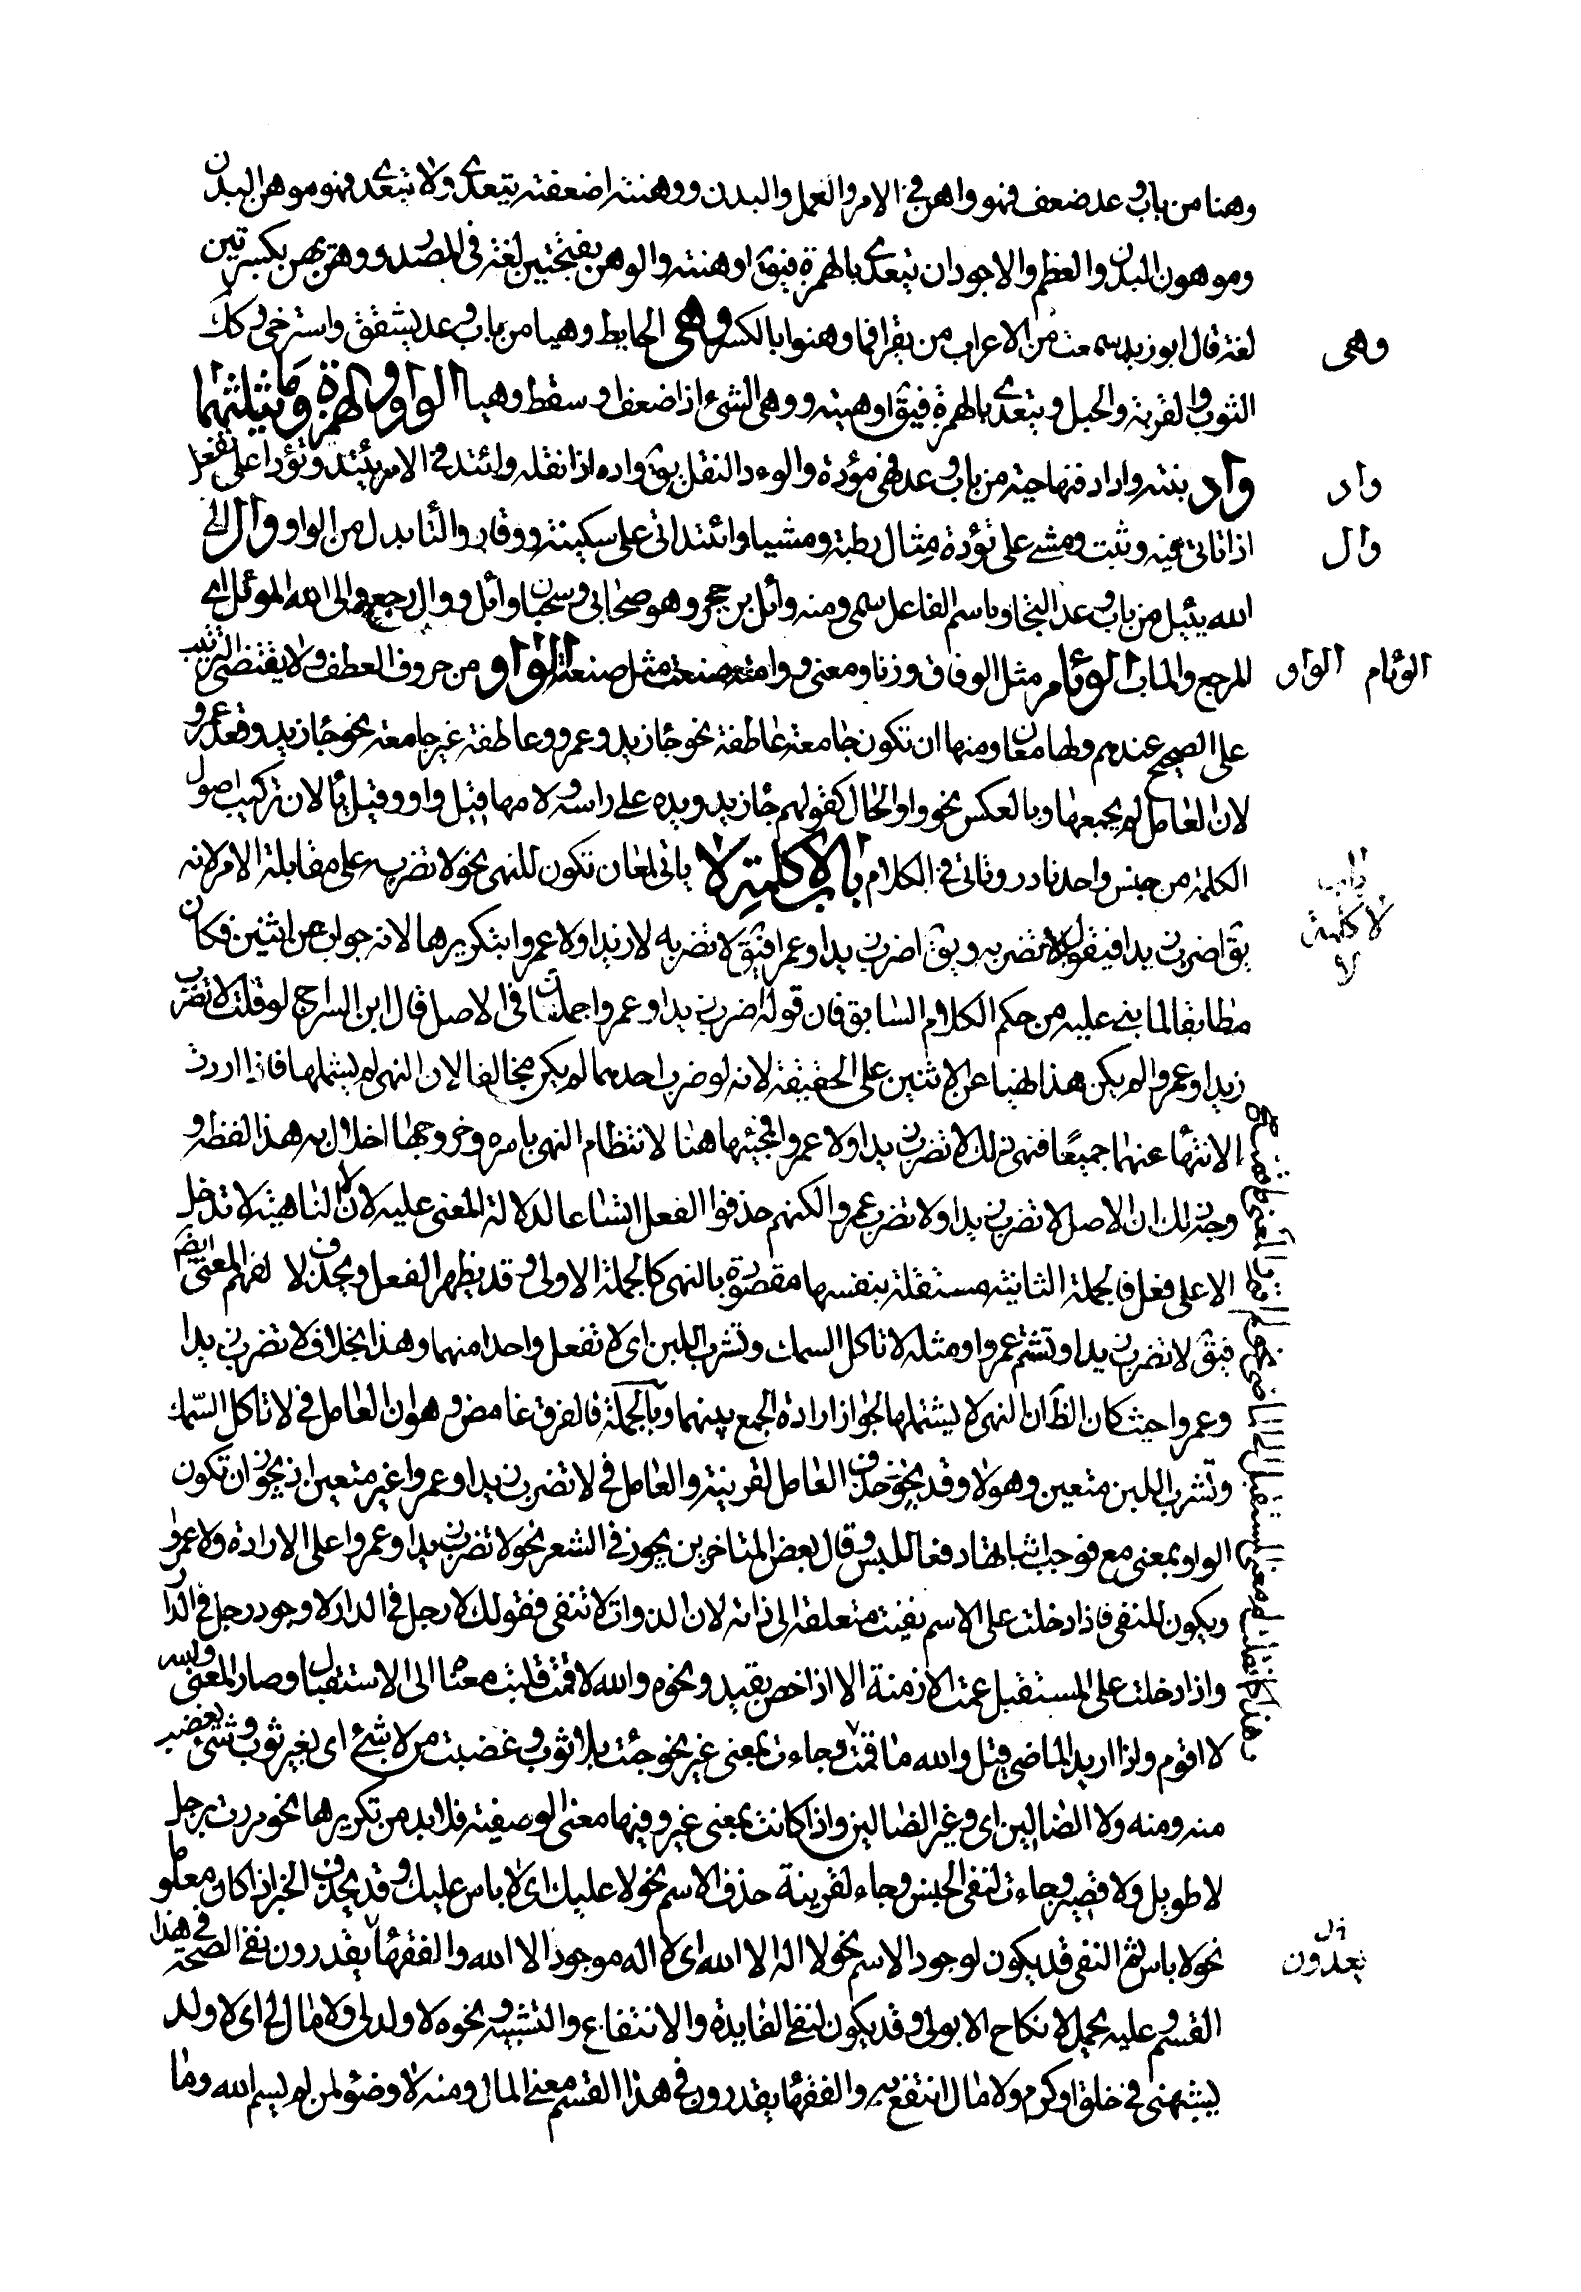 وهنا من باب وعد ضعف فهو واهن في الامر والعمل والبدن ووهنته اضعفته يتعدى ولا يتعدى فهو موهن البدن
وموهون البدن والعظم والاجود ان يتعدى بالهمزة فيق اوهنته والوهن بفتحتين لغة في المصدر ووهن يهن بكسرتين
وهى
لغة قال ابو زيد سمعت من الاعراب من يقرا فما وهنوا بالكسر وهى الحايط وهيا من باب وعد يشقق واسترخى وكك
الثوب والقربة والحبل ويتعدى بالهمزة فيق اوهيته ووهى الشئ اذا ضعف او سقط وهيا الواو والهمزة وما يثلثهما
واد
واد بنته وادا دفنها حية من باب وعد فهى مؤدة والوءد الثقل يق واده اذا ثقله واتئد في الامر يتئد وتؤدا على تفعل
وال
اذا تاتى فيه وثبت ومشى على تؤدة مثال رطبة ومشيا وائتدا اى على سكينة ووقار والتا بدل من الواو وال الى
الله يئيل من باب وعد التجا وباسم الفاعل سمى ومنه وائل بن حجر وهو صحابى وسحبان وائل ووال رجع والى الله الموئل اى
الوئام الواو
المرجع والماب الوئام مثل الوفاق وزنا ومعنى ووامته صنعت مثل صنعه الواو من حروف العطف ولا يقتضى الترتيب
على الصحيح عندهم ولها معان ومنها ان تكون جامعة عاطفة نحو جا زيد وعمرو وعاطفة غير جامعة نحو جا زيد وقعد عمرو
لان العامل لم يجمعها وبالعكس نحو واو الحال كقولهم جا زيد ويده على راسه ولامها قيل واو وقيل يا لان تركيب اصول
باب
لا كلمة
لا
الكلمة من جنس واحد نادر وتاتى في الكلام باب كلمة لا ياتى لمعان تكون للنهى نحو لا تضرب على مقابلة الامر لانه
يق اضرب زيدا فيقول لا تضربه ويق اضرب زيدا وعمرا فيق لا تضربه لا زيدا ولا عمروا بتكريرها لانه جواب عن اثنين فكان
مطابقا لما بنى عليه من حكم الكلام السابق فان قوله اضرب زيدا وعمروا جملتان في الاصل قال ابن السراج لو قلت لا تضرب
زيدا وعمروا لم يكن هذا نهيا عن الاثنين على الحقيقة لانه لو ضرب احدهما لم يكن مخالفا لان النهى لم يشملها فاذا اردت
الانتها عنهما جميعا فنهى ذلك لا تضرب زيدا ولا عمروا فمجيئها هنا لانتظام النهى باسره وخروجها اخلال به هذا لفظه و
وجه ذلك ان الاصل لا تضرب زيدا ولا تضرب عمروا لكنهم حذفوا الفعل اتساعا لدلالة المعنى عليه لان لا الناهية لا تدخل
الا على فعل فالجملة الثانية مستقلة بنفسها مقصودة بالنهى كالجملة الاولى وقد يظهر الفعل ويحذف لا لفهم المعنى ايضا
فيق لا تضرب زيدا وتشتم عمروا ومثله لا تاكل السمك وتشرب اللبن اى لا تفعل واحدا منهما وهذا بخلاف لا تضرب زيدا
وعمروا حيث كان الظ ان النهى لا يشتملها لجواز ارادة الجمع بينهما وبالجملة فالفرق غامض وهو ان العامل في لا تاكل السمك
وتشرب اللبن متعين وهو لا وقد يجوز حذف العامل لقرينة والعامل في لا تضرب زيدا وعمروا غير متعين اذ يجوز ان تكون
الواو بمعنى مع فوجب اثباتها دفعا للبس وقال بعض المتاخرين يجوز في الشعر نحو لا تضرب زيدا وعمروا على الارادة ولا عمروا
ويكون للنفى فاذا دخلت على الاسم نفت متعلقه لا ذاته لان الذوات لا تنفى فقولك لا رجل في الدار لا وجود رجل في الدار
واذا دخلت على المستقبل عمت الازمنة الا اذا خص بقيد ونحوه والله لا قمت قلبت معناه الى الاستقبال وصار المعنى والله
لا اقوم واذا اريد الماضى قيل والله ما قمت وجاءت بمعنى غير نحو جئت بلا ثوب وغضبت من لا شئ اى بغير ثوب وشئ يغضب
منه ومنه ولا الضالين اى وغير الضالين واذا كانت بمعنى غير وفيها معنى الوصفية فلا بد من تكريرها نحو مررت برجل
لا طويل ولا قصير وجاءت لنفى الجنس وجاء لقرينة حذف الاسم نحو لا عليك اى لا باس عليك وقد يحذف الخبر اذا كان معلوما
نحو لا باس ثم النفى قد يكون لوجود الاسم نحو لا اله الا الله اى لا اله موجود الا الله والفقها يقدرون نفى الصحة في هذا
يعدون
القسم وعليه يحمل لا نكاح الا بولى وقد يكون لنفى الفايدة والانتفاع والتشبيه ونحوه لا ولد لى ولا مال لى اى لا ولد
يشبهنى في خلق او كرم ولا مال انتفع به والفقها يقدرون في هذا القسم معنى المال ومنه لا وضؤ لمن لم يسم الله وما